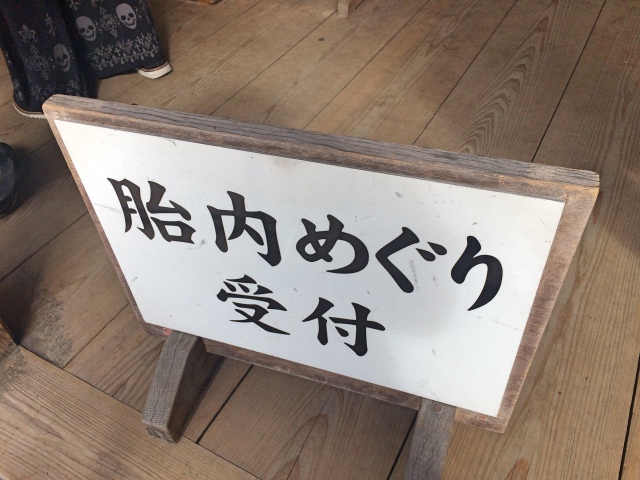 胎内めぐり
受付